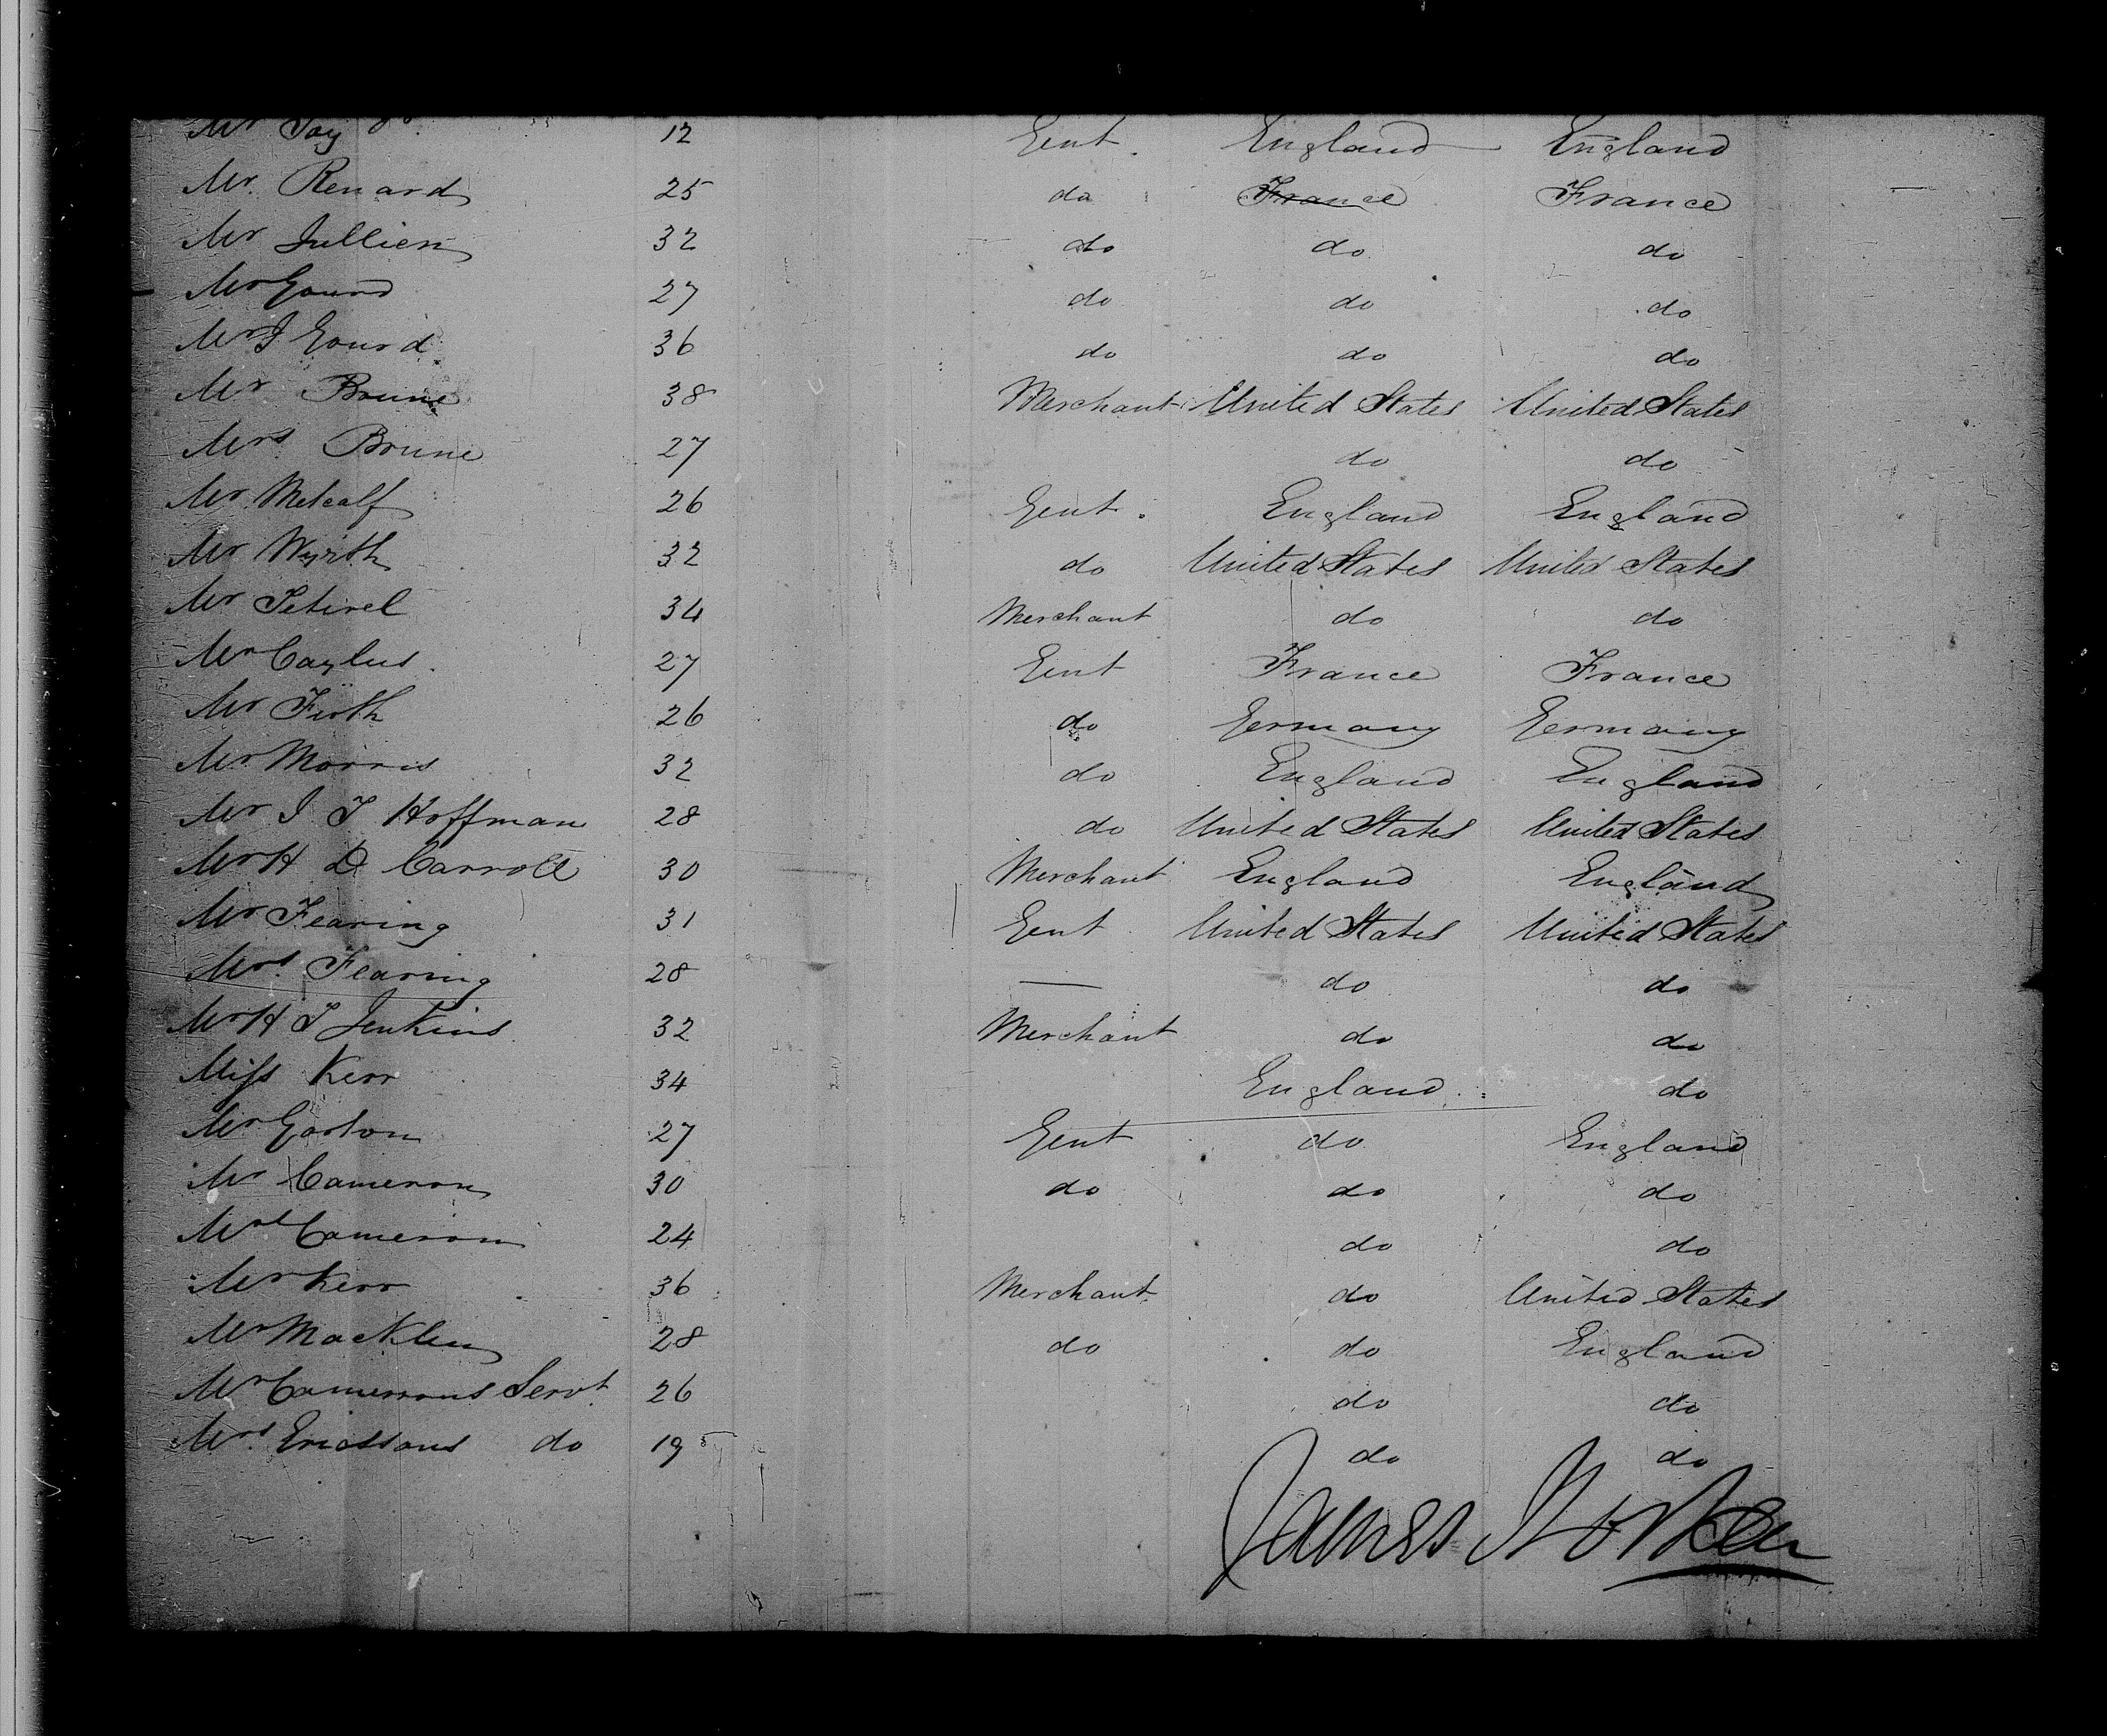 Mr Jay do. 12 Gent. England England
Mr. Renard 25 do France France
Mr Jullien 32 do do do
Mr Gourd 27 do do do
Mr J Gourd 36 do do do
Mr Brune 38 Merchant United States United States
Mrs Brune 27 do do
Mr Metcalf 26 Gent. England England
Mr Wyrth 32 do United States United States
Mr 34 Merchant do do
Mr Caylus. 27 Gent France France
Mr Firth 26 do Germany Germany
Mr Morris 32 do England England
Mr J T Hoffman 28 do United States United States
Mr H D Carroll 30 Merchant England England
Mr Fearing 31 Gent United States United States
Mrs. Fearing 28 — do do
Mr H T Jenkins 32 Merchant do do
Miss Kerr 34 England do
Mr Gorton 27 Gent do England
Mr Cameron 30 do do do
Mrs Cameron 24 do do
Mr Kerr 36 Merchant do United States
Mr Macklin 28 do do England
Mr Camerons Servt. 26 do do
Mrs. Ericssons do 19 do do
James